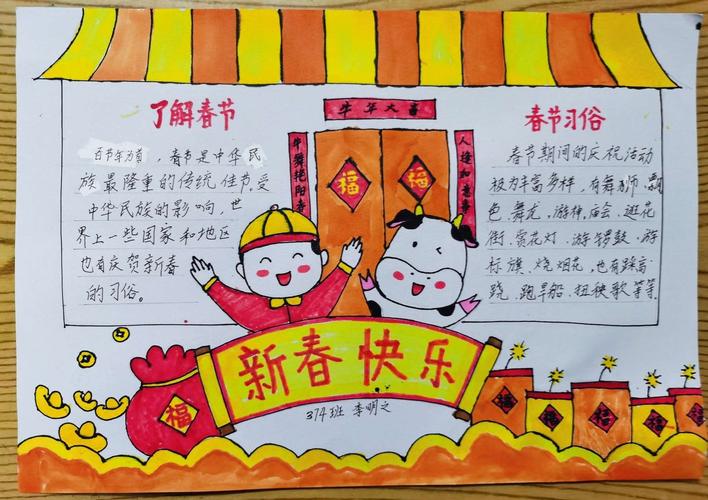 牛年大吉
牛舞艳阳春
人逢如意春
福
福
了解春节
百节年为首，春节是中华民
族最隆重的传统佳节，受
中华民族的影响，世
界上一些国家和地区
也有庆贺新春
的习俗。
春节习俗
春节期间的庆祝活动
极为丰富多样，有舞狮、飘
色、舞龙、游神、庙会、逛花
街、赏花灯、游锣鼓、游
标旗、烧烟花，也有踩高
跷、跑旱船、扭秧歌等等
新春快乐
374班 李明之
福
福
福
福
福
福